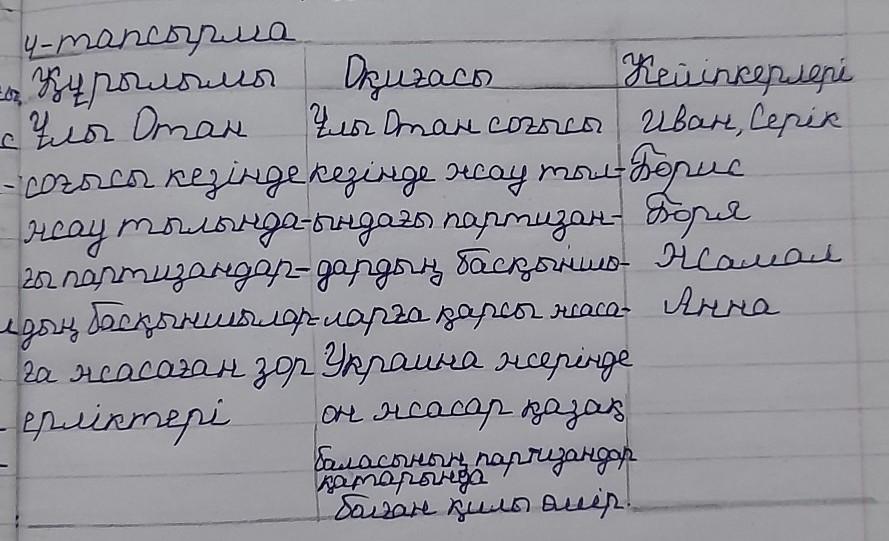 4-тапсырма
Құрылымы Оқиғасы Кейіпкерлері
Ұлы Отан Ұлы Отан соғысы Иван, Серік
соғысы кезінде кезінде жау тыл- Борис
жау тылында- ындағы партизан- Боря
ғы партизандар- дардың басқыншы- Жамал
дың басқыншылар- ларға қарсы жаса- Анна
ға жасаған зор Украина жерінде
ерліктері он жасар қазақ
баласының партизандар
қатарында
болған қилы өмір.